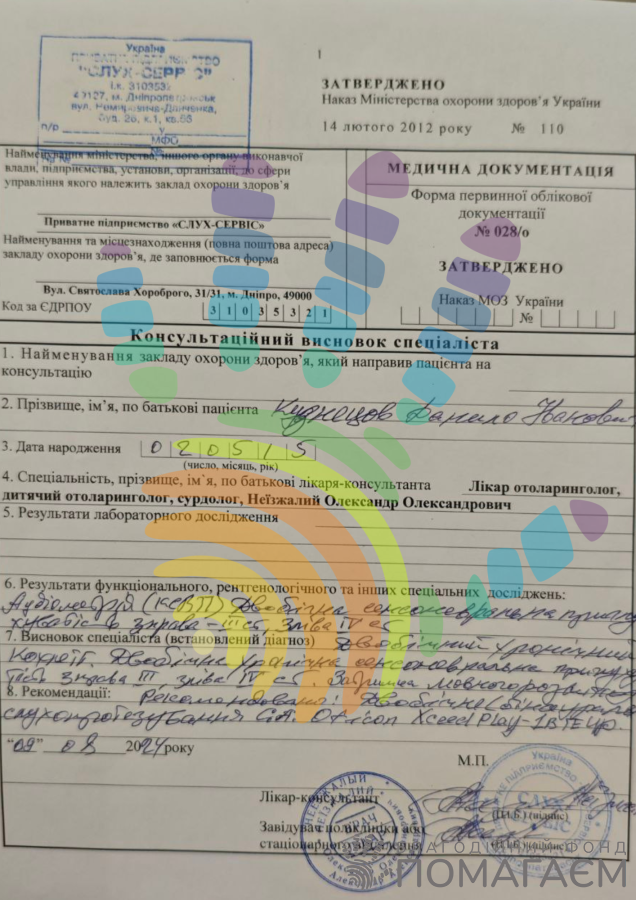 Україна
"СЛУХ-СЕРВІС"
МФО
№
1
ЗАТВЕРДЖЕНО
Наказ Міністерства охорони здоров'я України
14 лютого 2012 року № 110
Найменування міністерства, іншого органу виконавчої
влади, підприємства, установи, організації, до сфери
управління якого належить заклад охорони здоров'я
Приватне підприємство «СЛУХ-СЕРВІС»
Найменування та місцезнаходження (повна поштова адреса)
закладу охорони здоров'я, де заповнюється форма
Вул. Святослава Хороброго, 31/31, м. Дніпро, 49000
Код за ЄДРПОУ 31035321
МЕДИЧНА ДОКУМЕНТАЦІЯ
Форма первинної облікової
документації
№ 028/о
ЗАТВЕРДЖЕНО
Наказ МОЗ України
№
Консультаційний висновок спеціаліста
1. Найменування закладу охорони здоров'я, який направив пацієнта на
консультацію
2. Прізвище, ім'я, по батькові пацієнта Кузнецов Данило Іванович
3. Дата народження 020515
(число, місяць, рік)
4. Спеціальність, прізвище, ім'я, по батькові лікаря-консультанта Лікар отоларинголог,
дитячий отоларинголог, сурдолог, Неїзжалий Олександр Олександрович
5. Результати лабораторного дослідження
6. Результати функціонального, рентгенологічного та інших спеціальних досліджень:
Аудіометрія (КСВП) Двобічна сенсоневральна приглу
хуватість справа - III ст, зліва IV ст
7. Висновок спеціаліста (встановлений діагноз) Двобічний хронічний
Двобічна хронічна сенсоневральна приглуху
III зліва IV ст. Затримка мовного розвитку
8. Рекомендації: Рекомендовано: Двобічне
слухопротезування С.А. Oticon Xceed Play-1 BTE UP.
"09" 08 2024 року
М.П.
Лікар-консультант (П.І.Б.) (підпис)
Завідувач поліклініки або
стаціонарного відділення (П.І.Б.) (підпис)
ВРАЧ
Україна
СЛУХ
БЛАГОДІЙНИЙ ФОНД
ПОМАГАЄМ